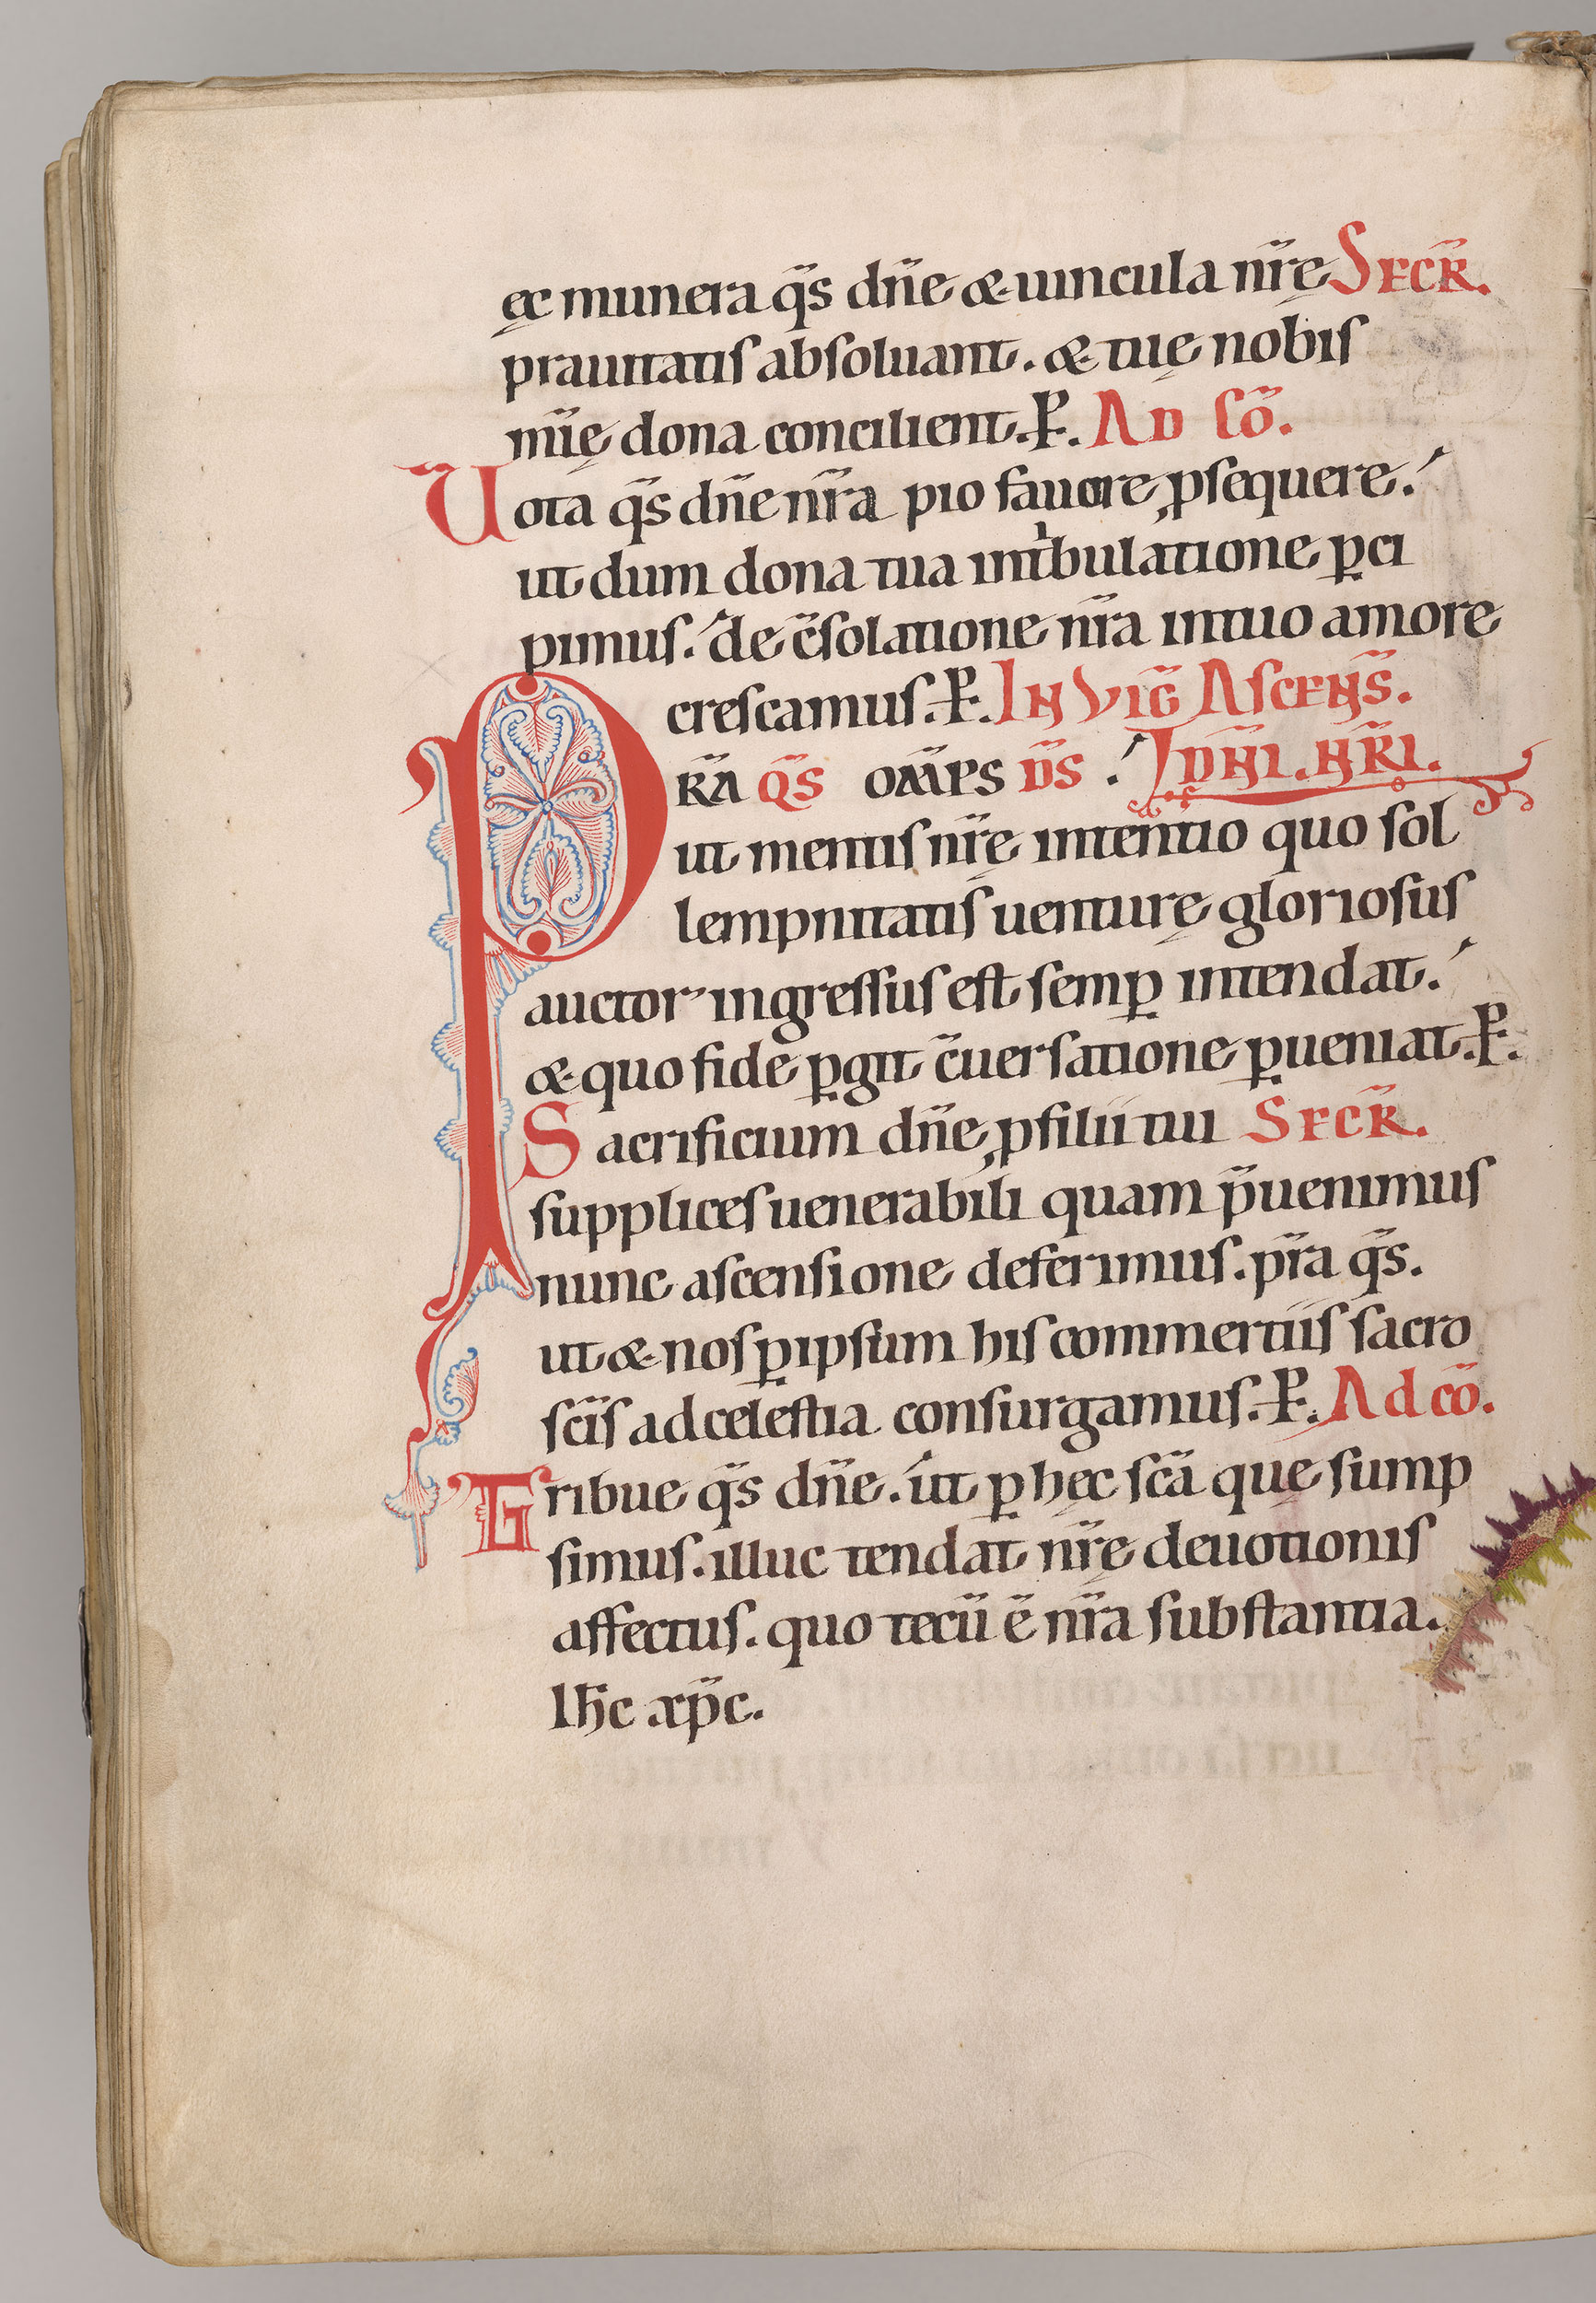 ęc munera q̄s dn̄e & uincula nr̄ę SECR̄.
prauitatis absoluant. & tuę nobis
mīę dona concilient. P. AD CŌ.
Uota q̄s dn̄e nr̄a pio fauore ꝓsequere.
ut dum dona tua intⁱbulatione ꝑci
pimus. de c̄solatione nr̄a in tuo amore
crescamus. P. IN VIG̅ ASCENS̄.
PR̄A Q̄S OM̄PS D̄S. DN̄I. NR̄I.
ut mentis nr̄ę intentio quo sol
lempnitatis uenturę gloriosus
auctor ingressus est semꝑ intendat.
& quo fide ꝑgit c̄uersatione ꝑueniat. P.
Sacrificium dn̄e ꝓ filii tui SECR̄.
supplices uenerabili quam p̄uenimus
nunc ascensione deferimus. pr̄a q̄s.
ut & nos ꝑ ipsum his commertiis sacro
sc̄is ad celestia consurgamus. P. Ad cō.
Tribue q̄s dn̄e. ut ꝑ hęc sc̄a quę sump
simus. illuc tendat nr̄ę deuotionis
affectus. quo tecū ē nr̄a substantia.
Ih̄c xp̄c.